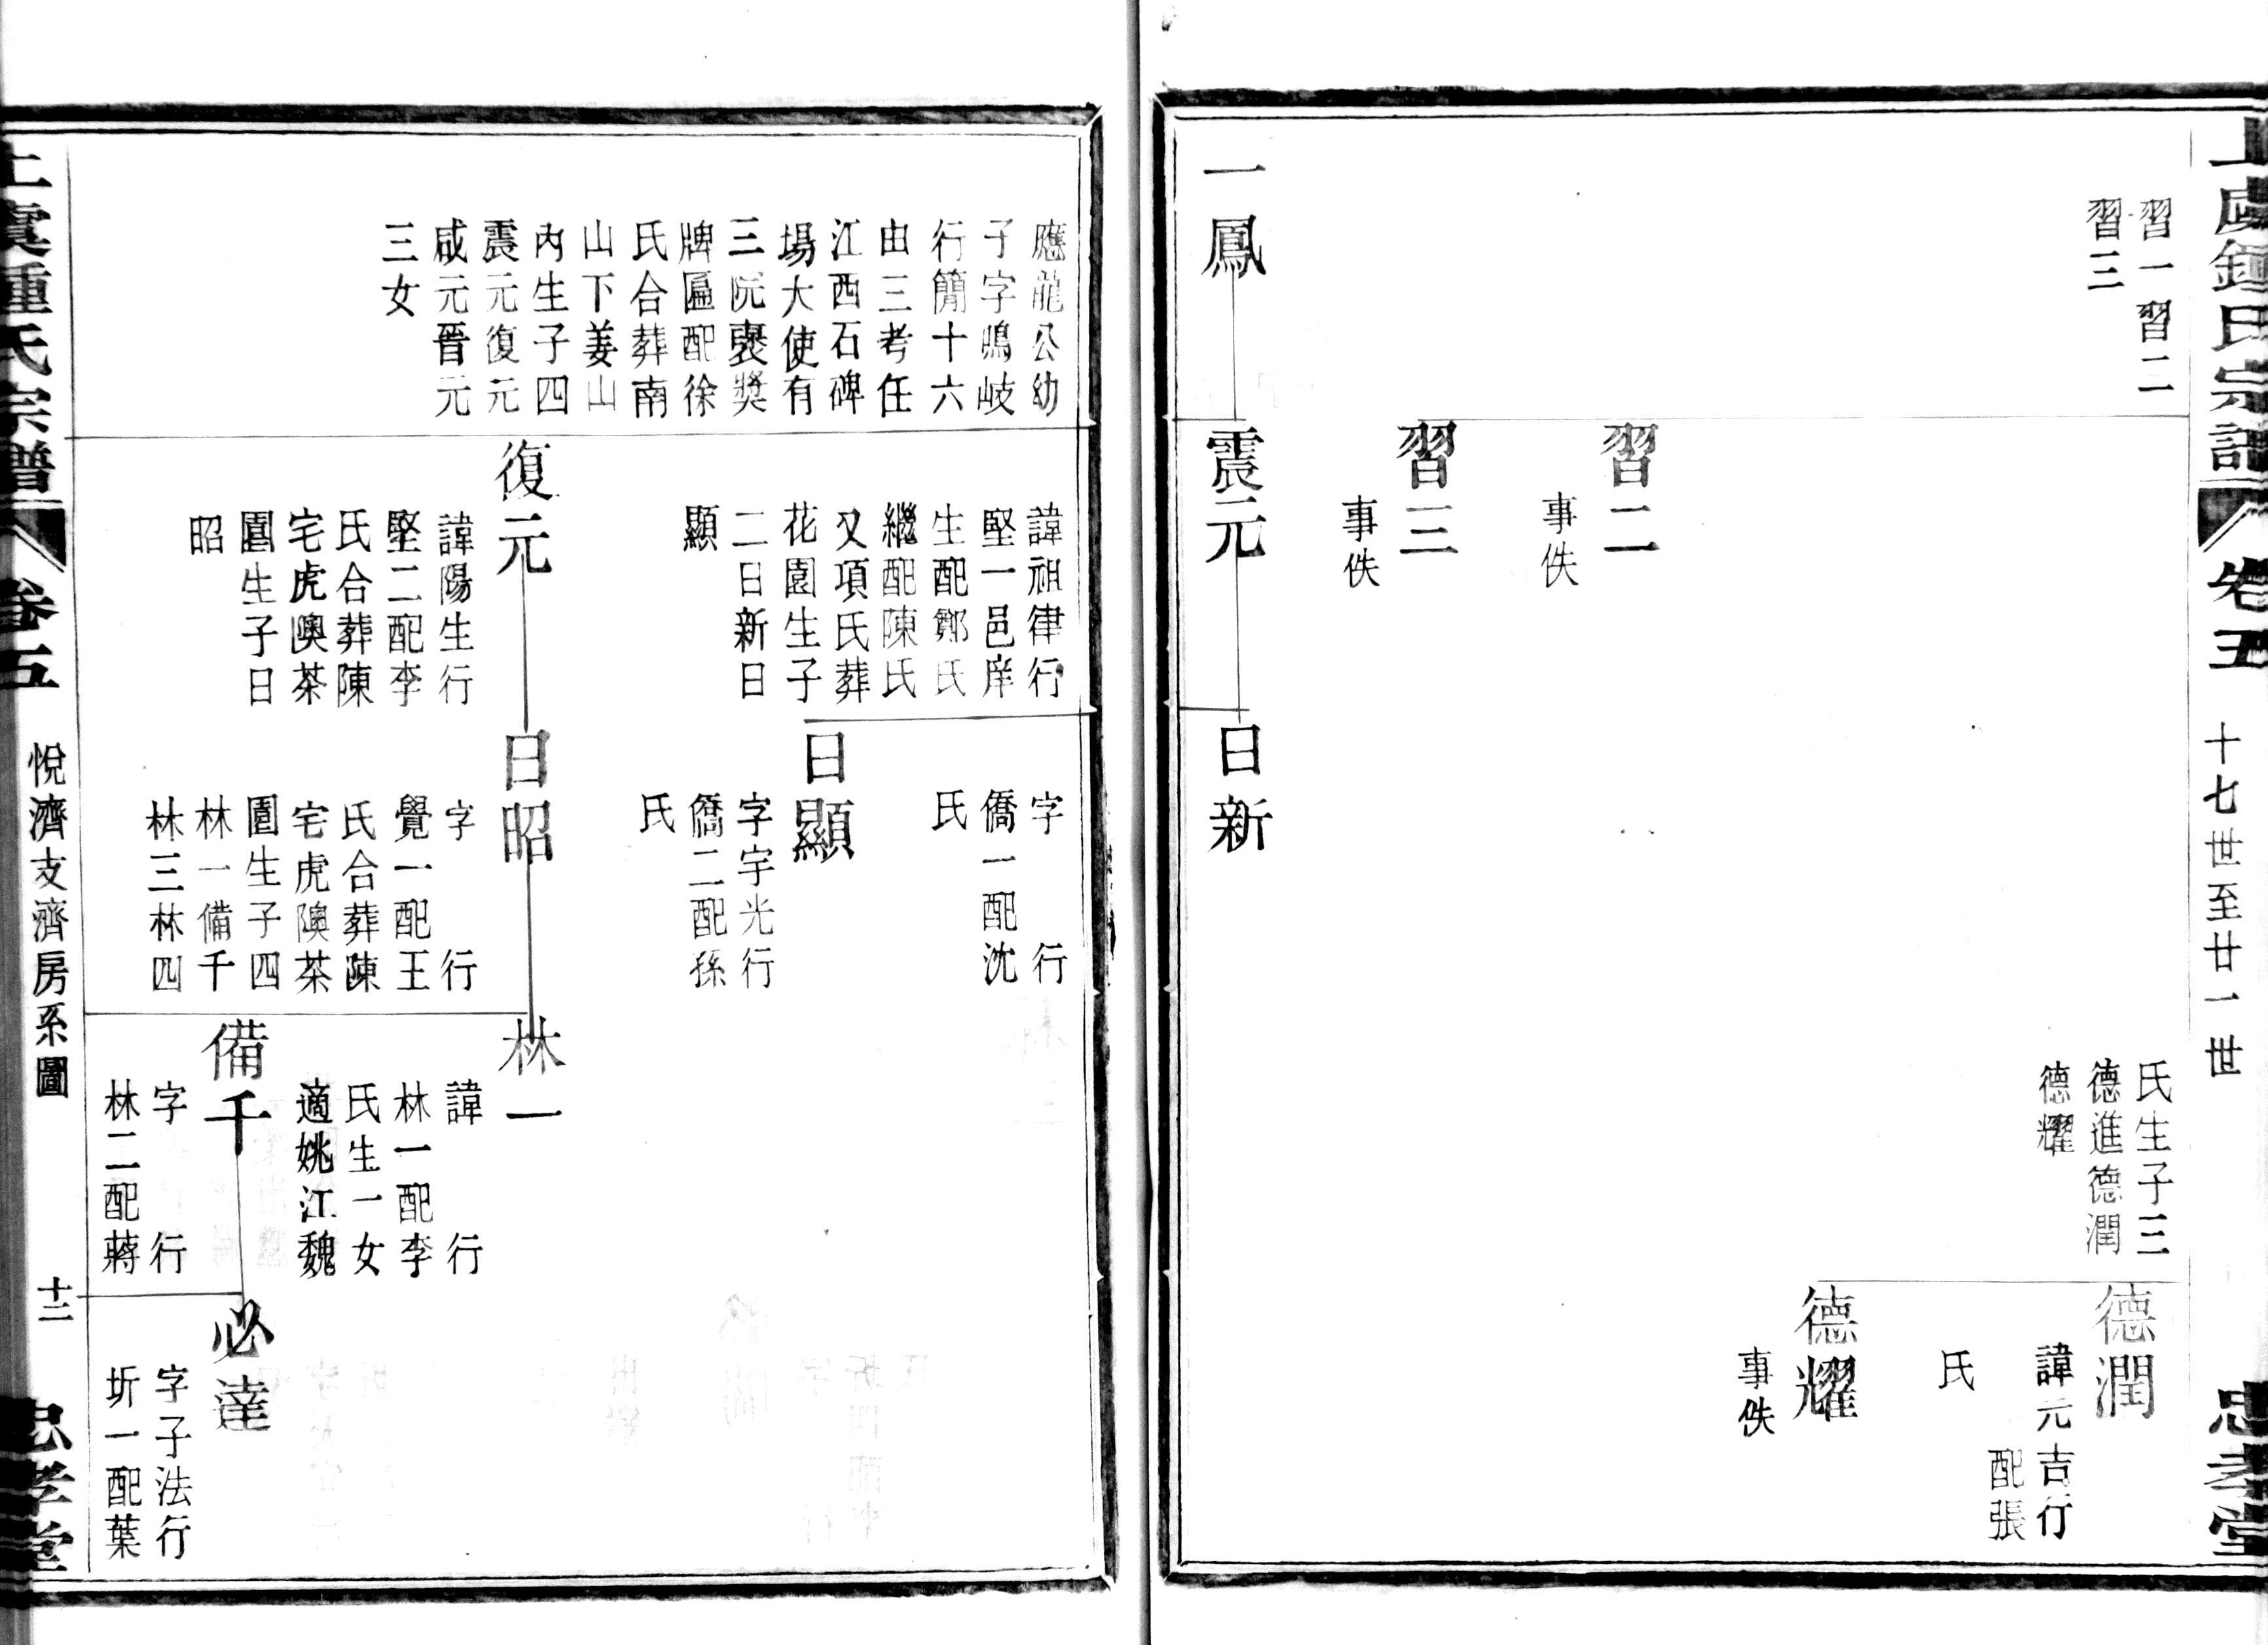 上虞鍾氏宗譜
卷五
十七世至廿一世
忠孝堂
習一習二
習三
習二
事佚
習三
事佚
氏生子三
德進德潤
德耀
德潤
諱元吉行
配張
氏
德耀
事佚
一鳳
震元
日新
應龍公幼
子字鳴岐
行簡十六
由三考任
江西石碑
場大使有
三院褒獎
牌匾配徐
氏合葬南
山下姜山
內生子四
震元復元
咸元晉元
三女
諱祖律行
堅一邑庠
生配鄭氏
繼配陳氏
又項氏葬
花園生子
二日新日
顯
字 行
僑一配沈
氏
日顯
字宇光行
僑二配孫
氏
復元
諱陽生行
堅二配李
氏合葬陳
宅虎隩茶
園生子日
昭
日昭
字 行
覺一配王
氏合葬陳
宅虎隩茶
園生子四
林一備千
林三林四
林一
諱 行
林一配李
氏生一女
適姚江魏
備千
字 行
林二配蔣
必達
字子法行
圻一配葉
上虞鍾氏宗譜
卷五
悅濟支濟房系圖
十二
忠孝堂